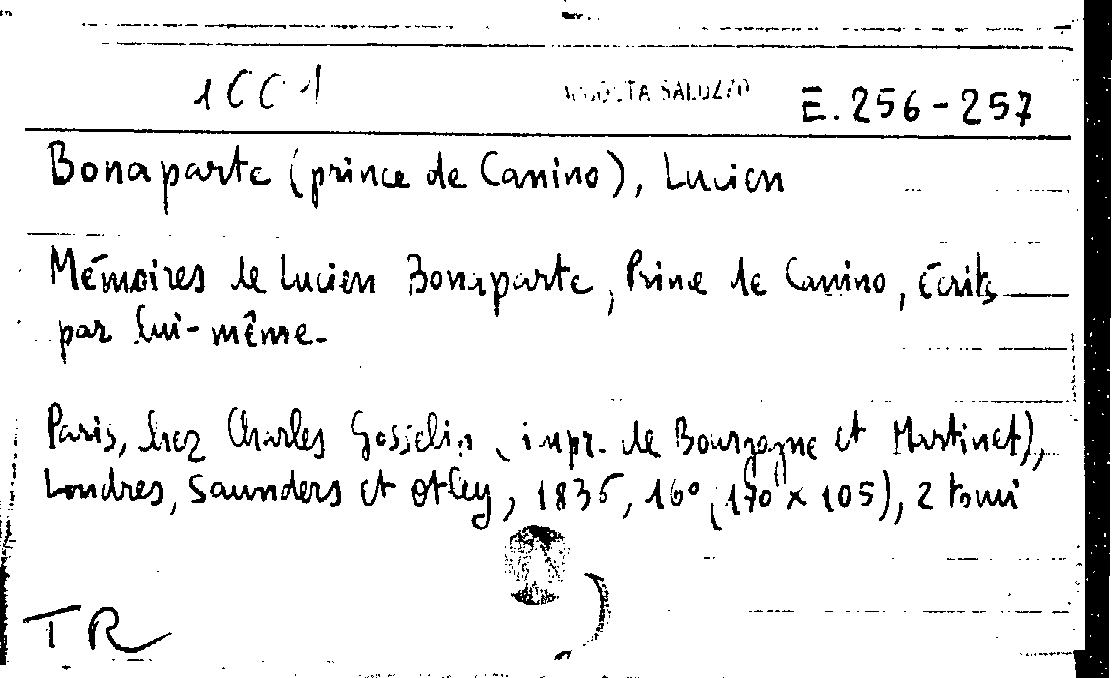 1CC1 RACCOLTA SALUZZO E.256-257
Bonaparte (prince de Canino), Lucien
Mémoires de Lucien Bonaparte, Prince de Canino, écrits
par lui-même.
Paris, chez Charles Gosselin (impr. de Bourgogne et Martinet),
Londres, Saunders et Otley, 1836, 16° (170 x 105), 2 tomi
TR